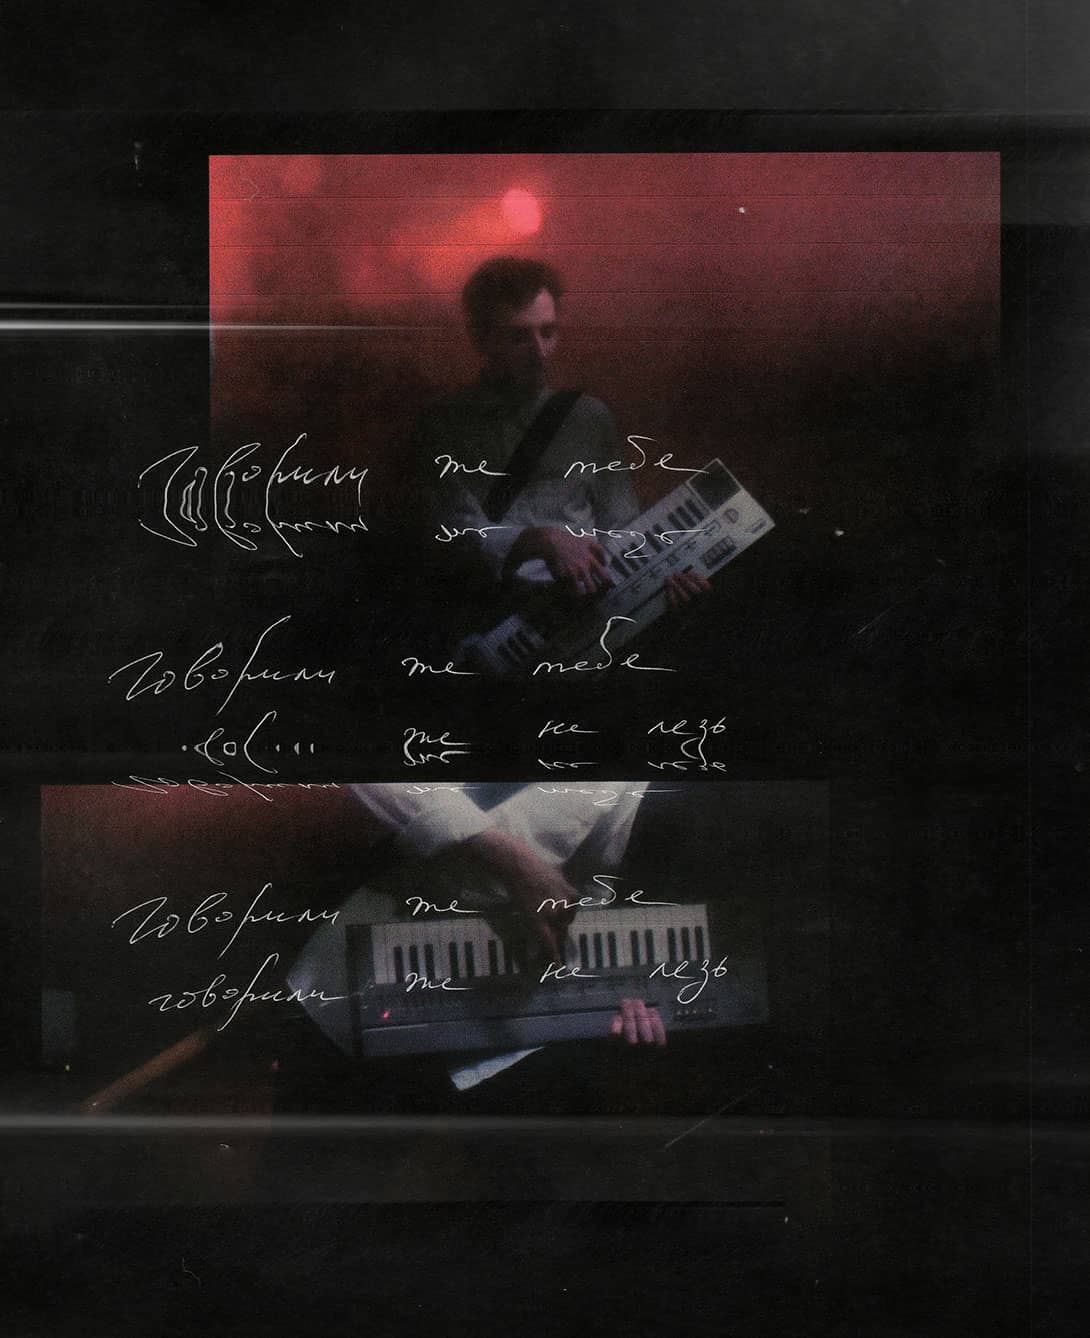 Говорили же тебе
Говорили же тебе
же не лезь
Говорили же тебе
говорили же не лезь